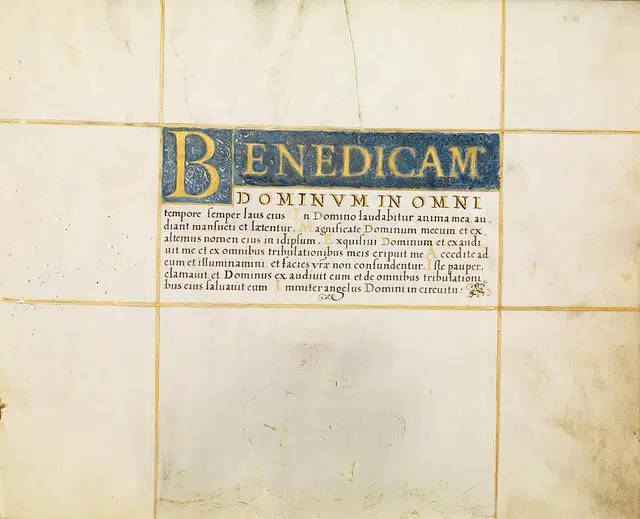 BENEDICAM
DOMINVM IN OMNI
tempore semper laus eius In Domino laudabitur anima mea au‐
diant mansueti et lætentur. Magnificate Dominum mecum et ex‐
altemus nomen eius in idipsum. Exquisiui Dominum et exaudi
uit me et ex omnibus tribulationibus meis eripuit me Accedite ad
eum et illuminamini et facies vræ non confundentur. Iste pauper
clamauit et Dominus exaudiuit eum et de omnibus tribulationi‐
bus eius saluauit eum Immiter angelus Domini in circuitu: